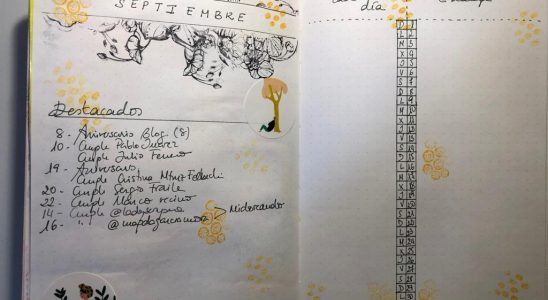 SEPTIEMBRE
Destacados
8 - Aniversario Blog (8)
10 - Cumple Pablo Juárez
Cumple Julio
19 - Aniversario
Cumple Cristina
20 - Cumple Sergio Fraile
22 - Cumple Marco
14 - Cumple
16 - "
Midiercando
día
D 1
L 2
M 3
X 4
J 5
V 6
S 7
D 8
L 9
M 10
X 11
J 12
V 13
S 14
D 15
L 16
M 17
X 18
J 19
V 20
S 21
D 22
L 23
M 24
X 25
J 26
V 27
S 28
D 29
L 30